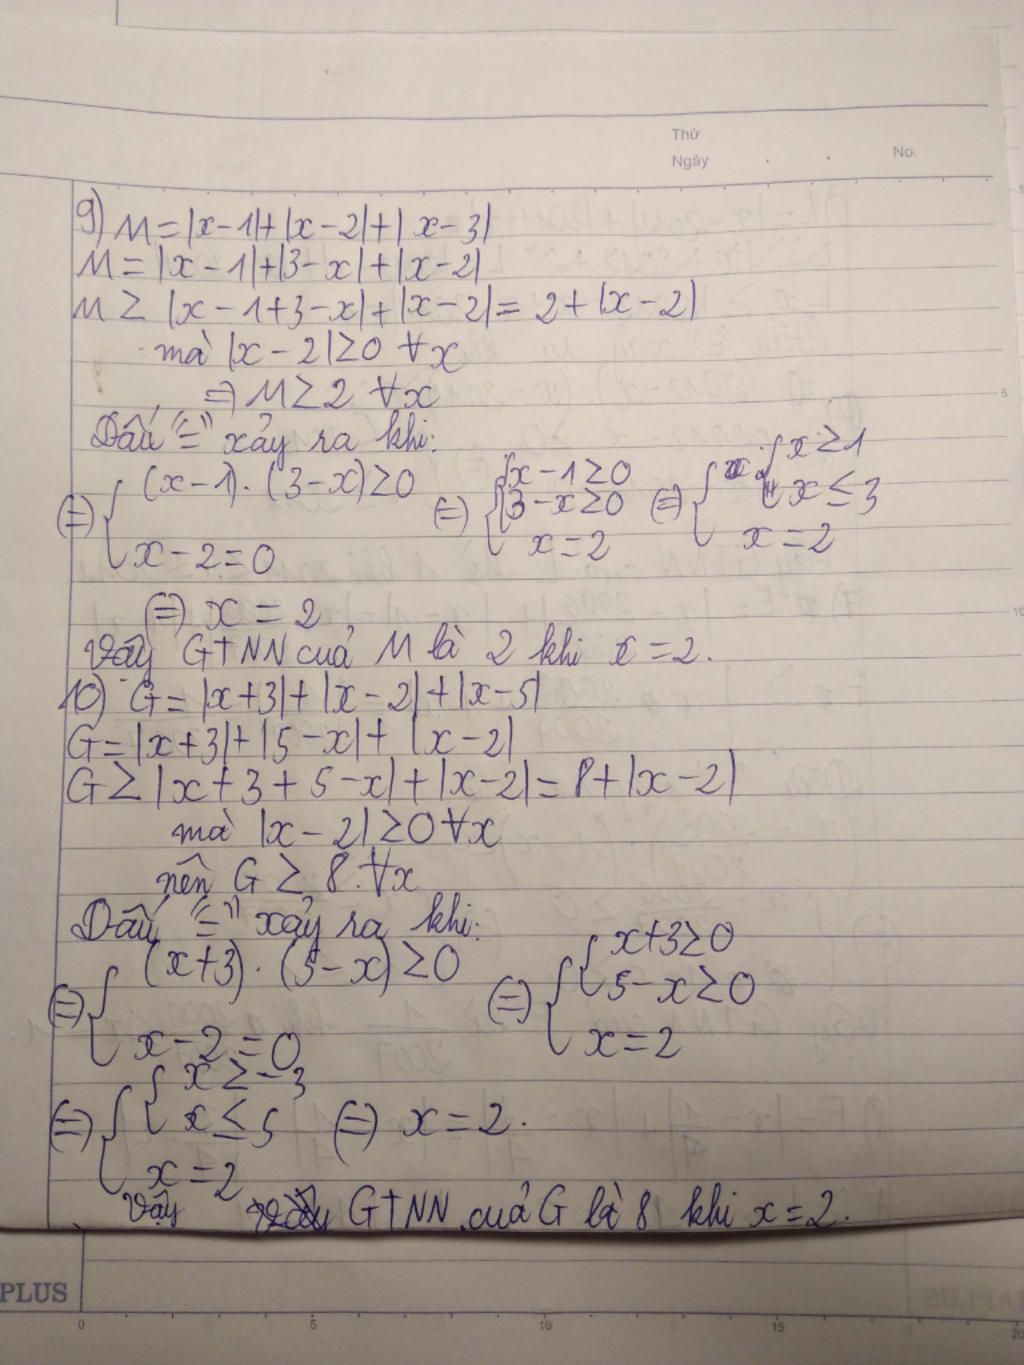 Thứ
Ngày . . No.
9) M = |x-1|+|x-2|+|x-3|
M = |x-1|+|3-x|+|x-2|
M ≥ |x-1+3-x|+|x-2| = 2+|x-2|
mà |x-2|≥0 ∀x
⇒ M ≥ 2 ∀x
Dấu "=" xảy ra khi:
(=) { (x-1).(3-x)≥0 (=) { { x-1≥0 (=) { { x≥1
3-x≥0 x≤3
x-2=0 x=2 x=2
(=) x = 2
Vậy GTNN cuả M là 2 khi x=2.
10) G = |x+3|+|x-2|+|x-5|
G = |x+3|+|5-x|+ |x-2|
G ≥ |x+3+5-x|+|x-2| = 8+|x-2|
mà |x-2|≥0 ∀x
nên G ≥ 8.∀x
Dấu "=" xảy ra khi:
(=) { (x+3).(5-x)≥0 (=) { { x+3≥0
5-x≥0
x-2=0 x=2
(=) { { x≥-3
x≤5 (=) x=2.
x=2
Vậy GTNN cuả G là 8 khi x=2.
PLUS
0 5 10 15 20